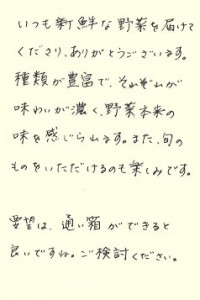 いつも新鮮な野菜を届けて
くださり、ありがとうございます。
種類が豊富で、それぞれが
味わいが濃く、野菜本来の
味を感じられます。また、旬の
ものをいただけるのも楽しみです。
要望は、通い箱ができると
良いですね。ご検討ください。